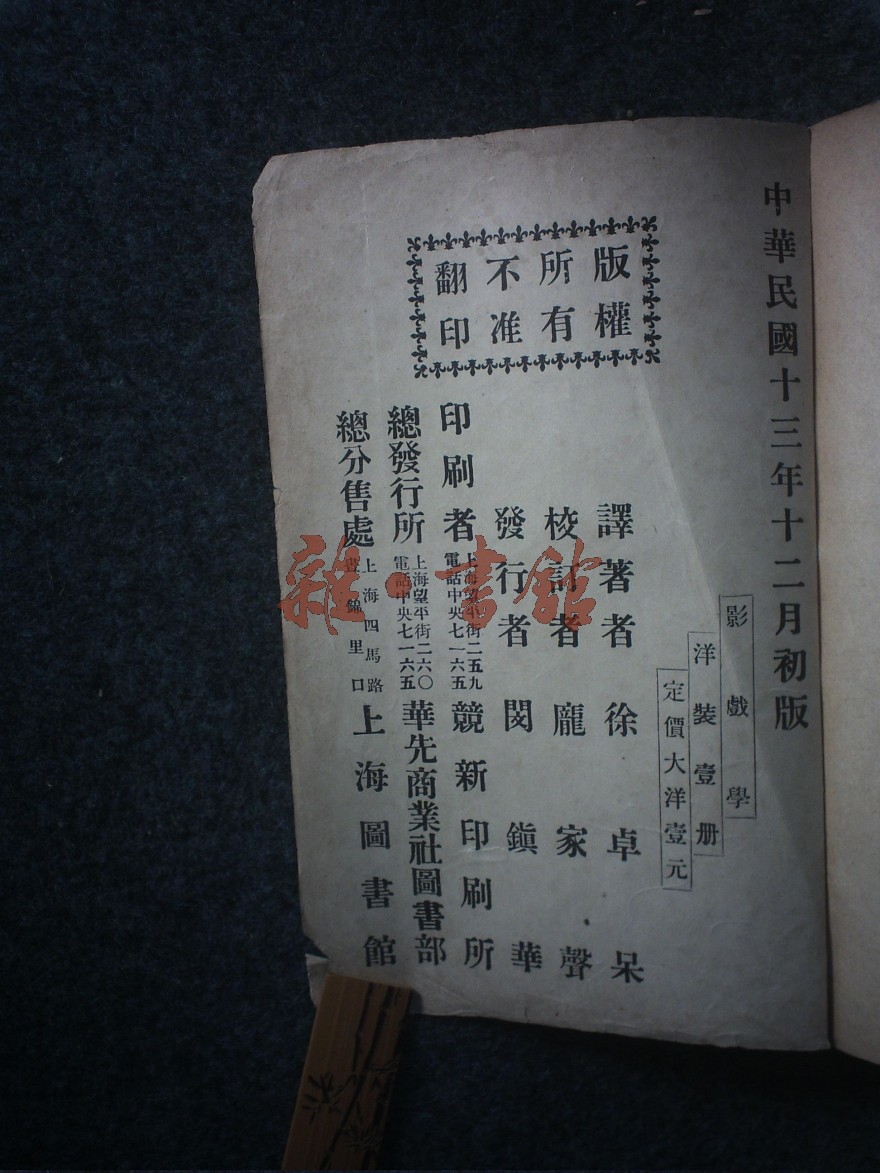 中華民國十三年十二月初版
影戲學
洋裝壹册
定價大洋壹元
版權
所有
不准
翻印
譯著者 徐卓呆
校訂者 龐家聲
發行者 閔鎭華
印刷者 上海望平街二五九 電話中央七一六五 競新印刷所
總發行所 上海望平街二六〇 電話中央七一六五 華先商業社圖書部
總分售處 上海四馬路 晝錦里口 上海圖書館
雜·書館